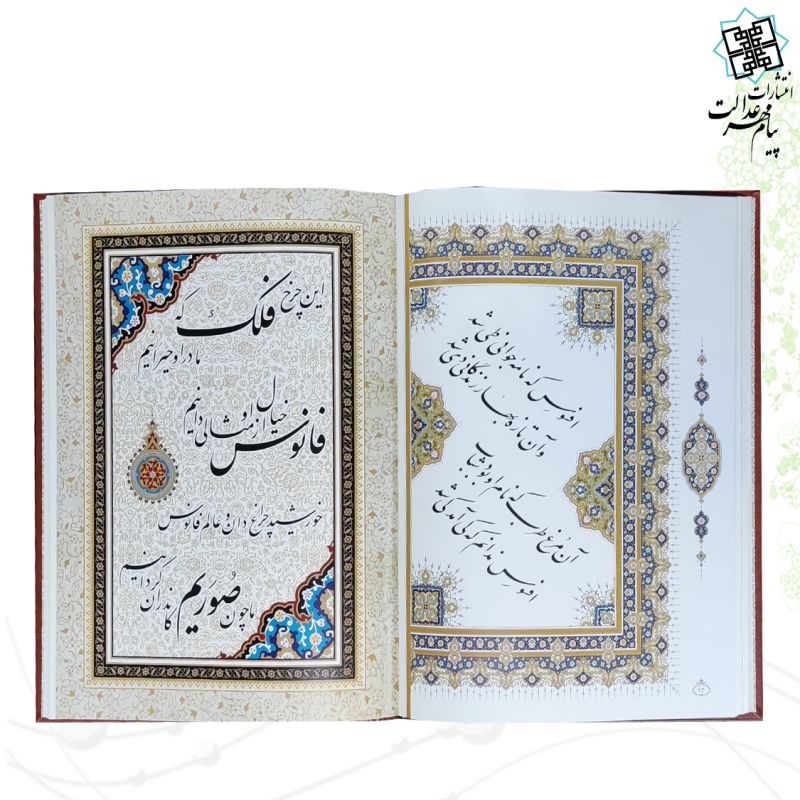 انتشارات
پیام مهر عدالت
افسوس که نامه جوانی طی شد
وآن تازه بهار زندگانی دی شد
آن مرغ طرب که نام او بود شباب
افسوس ندانم که کی آمد کی شد
۷۲
این چرخ فلک که
ما در او حیرانیم
فانوس خیال از او مثالی دانیم
خورشید چراغ دان و عالم فانوس
ما چون صوریم کاندر آن گردانیم